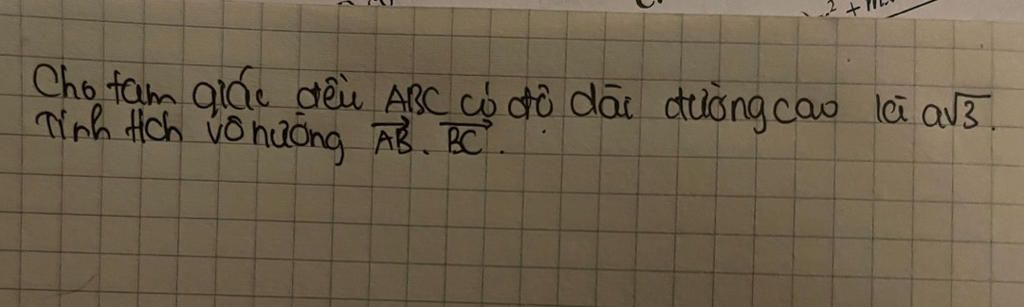 Cho tam giác đều ABC có độ dài đường cao là a√3.
Tính tích vô hướng \overrightarrow{AB}. \overrightarrow{BC}.